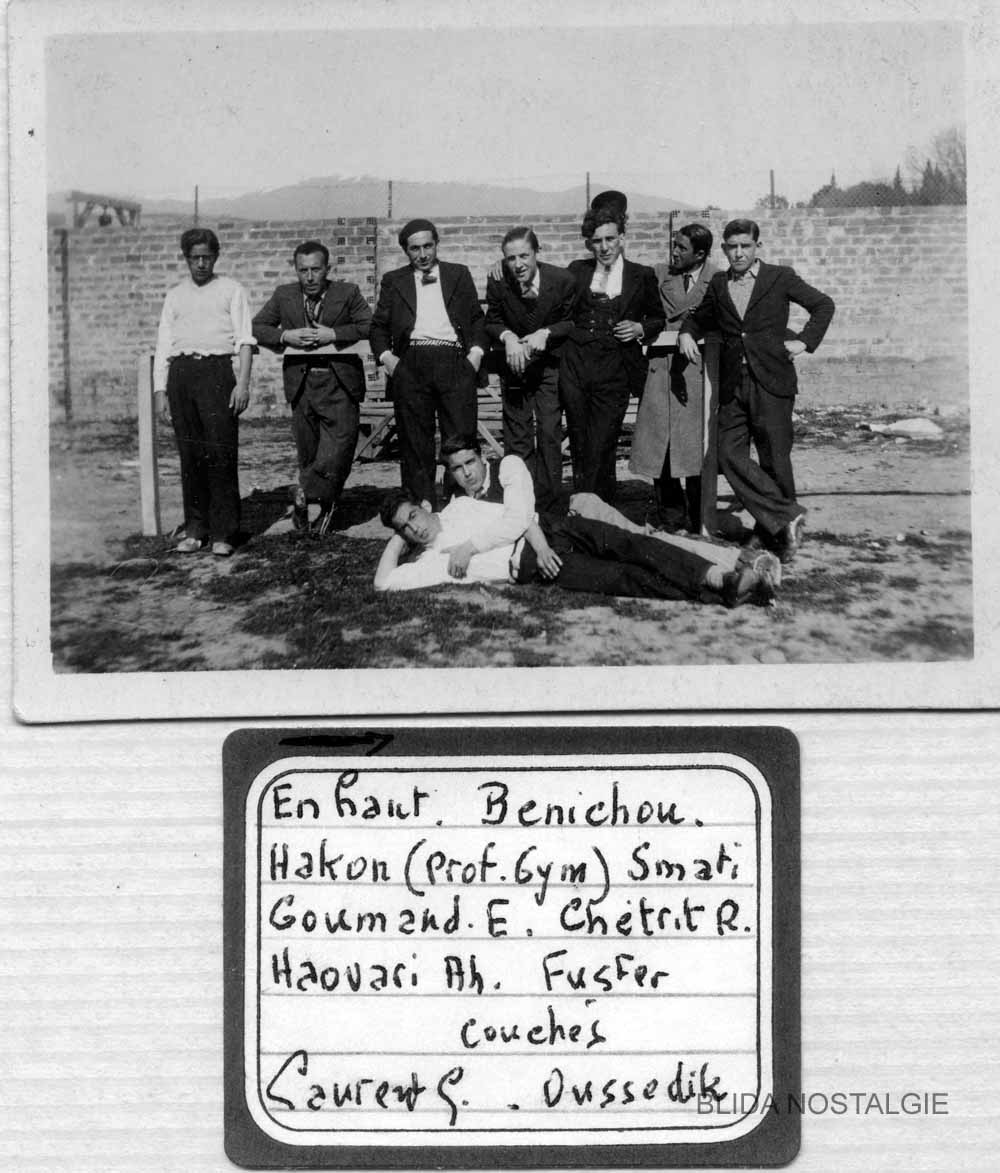 En haut. Benichou.
Hakon (Prof. Gym) Smati
Goumand. E. Chétrit R.
Haouari Ah. Fuster
couchés
Laurent G. . Oussedik
BLIDA NOSTALGIE